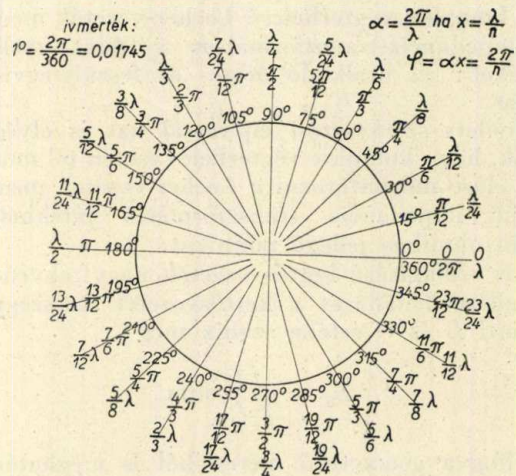 ivmérték:
1° = 2π/360 = 0,01745
α = 2π/λ ha x = λ/n
φ = αx = 2π/n
0° 0 0
360° 2π λ
15° π/12 λ/24
30° π/6 λ/12
45° π/4 λ/8
60° π/3 λ/6
75° 5π/12 5/24 λ
90° π/2 λ/4
105° 7/12 π 7/24 λ
120° 2/3 π λ/3
135° 3/4 π 3/8 λ
150° 5/6 π 5/12 λ
165° 11/12 π 11/24 λ
180° π λ/2
195° 13/12 π 13/24 λ
210° 7/6 π 7/12 λ
225° 5/4 π 5/8 λ
240° 4/3 π 2/3 λ
255° 17/12 π 17/24 λ
270° 3/2 π 3/4 λ
285° 19/12 π 19/24 λ
300° 5/3 π 5/6 λ
315° 7/4 π 7/8 λ
330° 11/6 π 11/12 λ
345° 23/12 π 23/24 λ